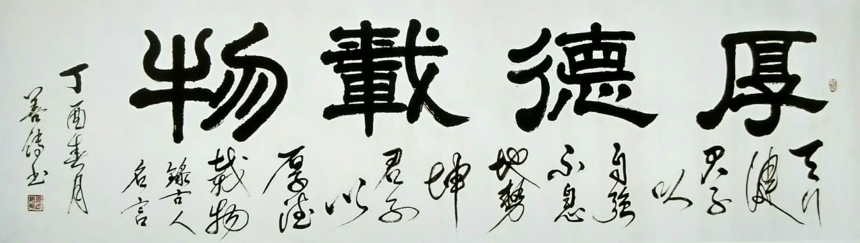 厚德載物
天行
健
君子
以
自強
不息
地勢
坤
君子
以
厚德
載物
錄古人
名言
丁酉春月
善傳書